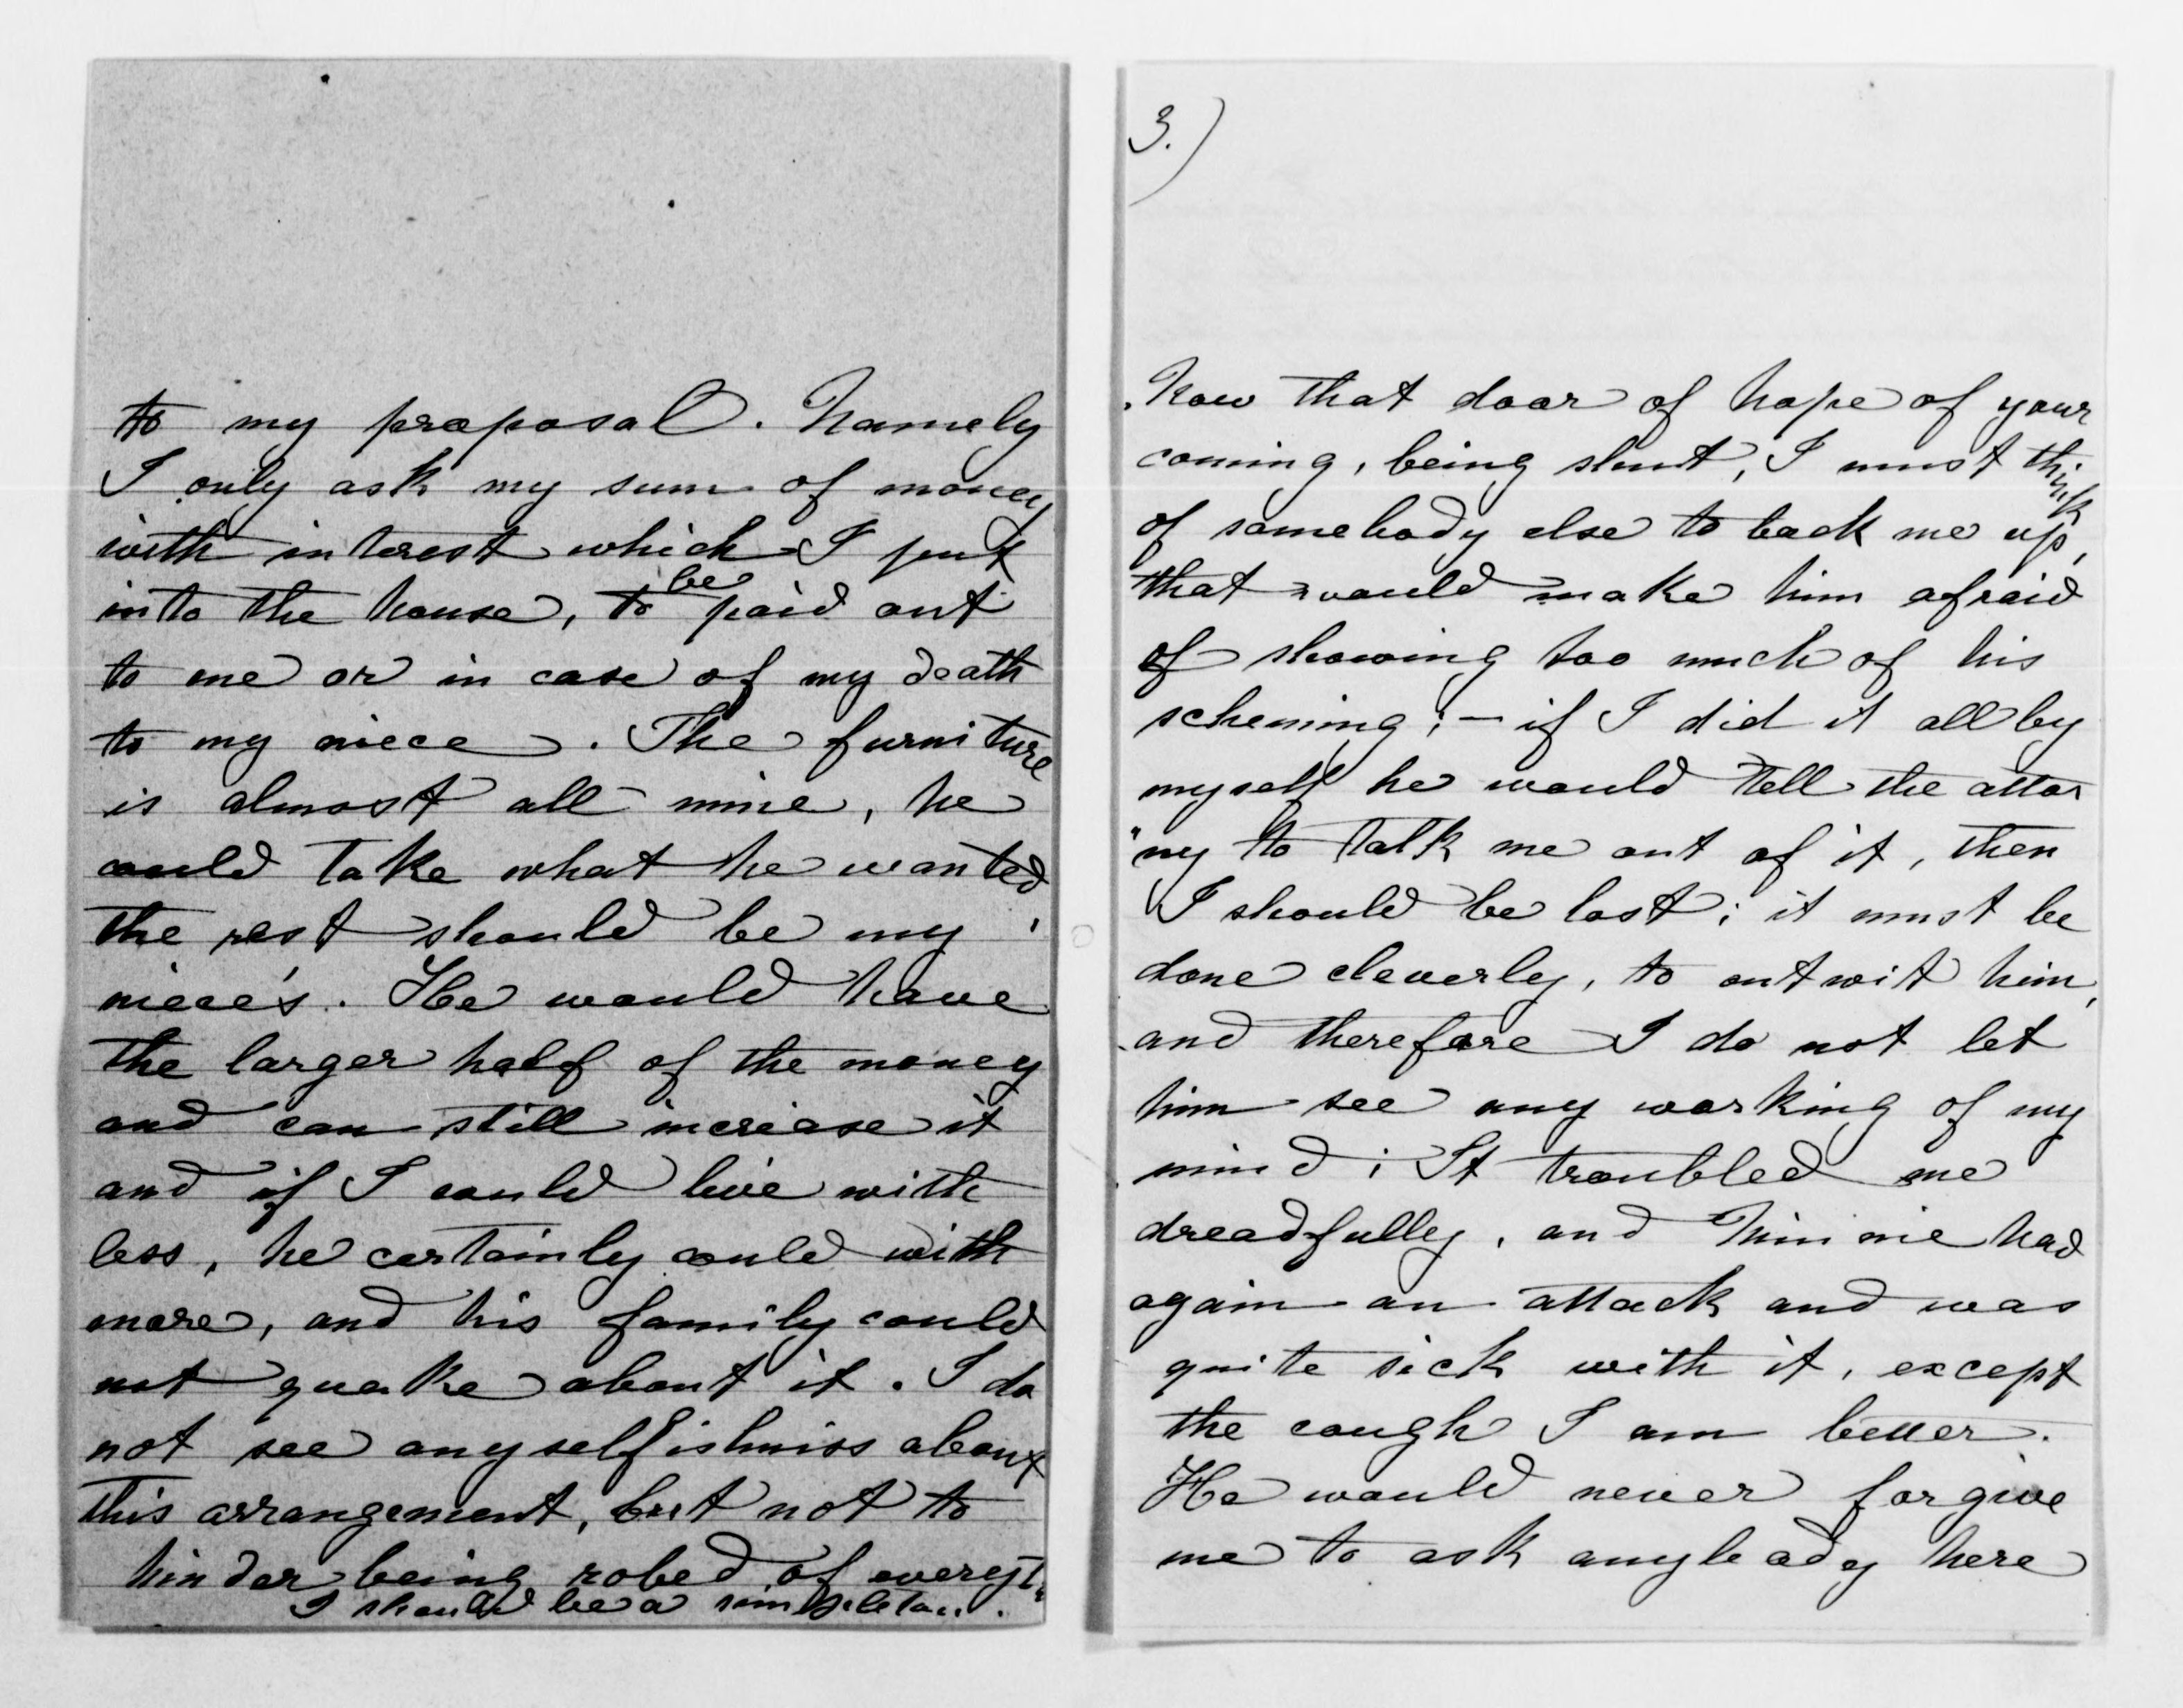 to my proposal. Namely
I only ask my sum of money
with interest which I put
into the house, to be paid out
to me or in case of my death
to my niece. The furniture
is almost all mine, he
could take what he wanted
the rest should be my
niece's. He would have
the larger half of the money
and can still increase it
and if I could live with
less, he certainly could with
more, and his family could
not quake about it. I do
not see any selfishniss about
this arrangement, but not to
hinder being robed of everyt"
I should be a simpleton.
3.)
Now that door of hope of your
coming, being shut, I must think
of somebody else to back me up,
that would make him afraid
of showing too much of his
scheming; – if I did it all by
myself he would tell the attor
"ny to talk me out of it, then
I should be lost; it must be
done cleverly, to outwit him,
and therefore I do not let
him see any working of my
mind; It troubled me
dreadfully, and Minnie had
again an attack and was
quite sick with it, except
the cough I am better.
He would never forgive
me to ask anybody here